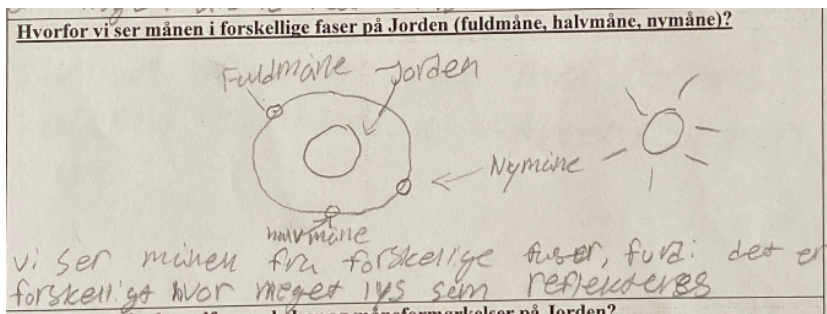 Hvorfor vi ser månen i forskellige faser på Jorden (fuldmåne, halvmåne, nymåne)?
Fuldmåne Jorden
Nymåne
halvmåne
vi ser månen fra forskellige faser, fordi det er
forskelligt hvor meget lys som reflekteres
på Jorden?